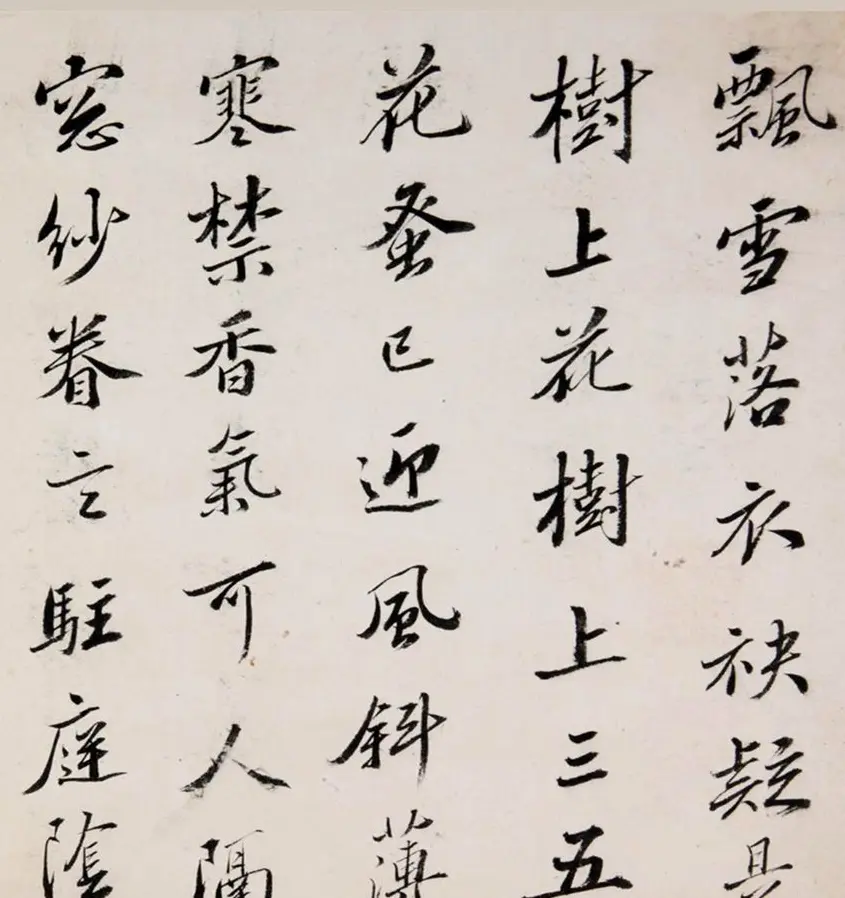 飄雪落衣袂疑是
樹上花樹上三五
花蚤已迎風斜薄
寒禁香氣可人隔
窓紗眷言駐庭陰